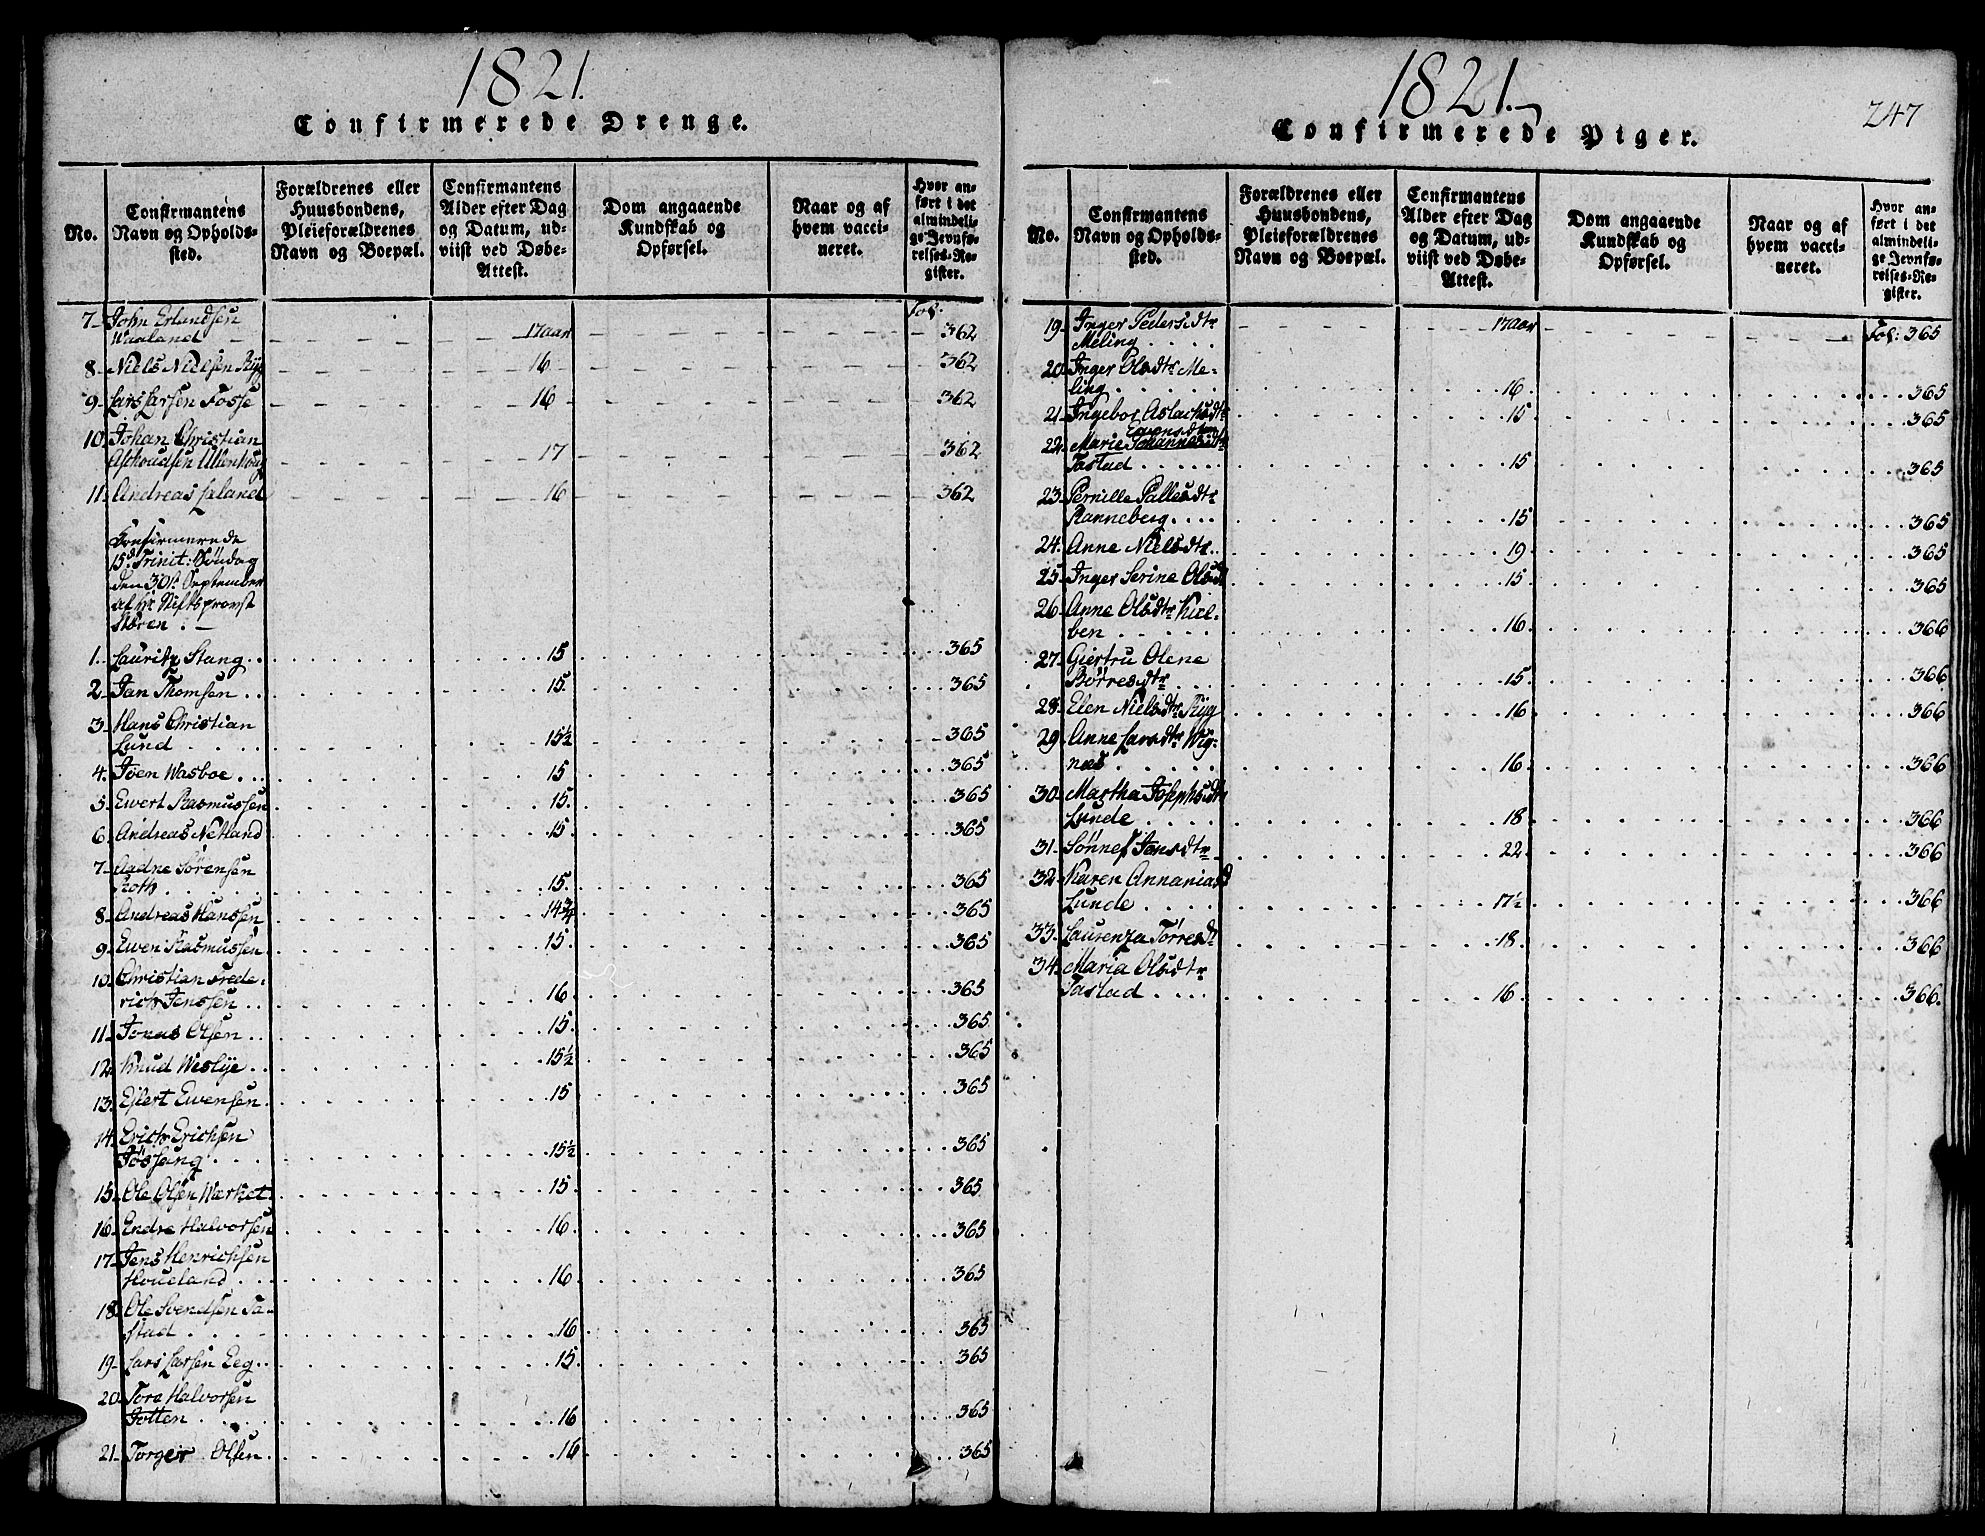 1821.
Confirmerede Drenge.
No.
Confirmantens
Navn og Opholds-
sted.
Forældrenes eller
Huusbondens,
Pleieforældrenes
Navn og Boepæl.
Confirmantens
Alder efter Dag
og Datum, ud-
viist ved Døbe-
Attest.
Dom angaaende
Kundskab og
Opførsel.
Naar og af
hvem vacci-
neret.
Hvor an-
ført i det
almindeli-
ge Jevnfø-
relses-Re-
gister.
Fol.
7- John Erlandsen
Waaland - 17 aar - 362
8- Niels Nielsen Ryg - 16 - 362
9- Lars Larsen Fosse - 16 - 362
10. Johan Christian
Ullenhoug - 17 - 362
11. Andreas Leland - 16 - 362
Confirmerede
15d Trinit: Søndag
den 30te September
af Hr. Stiftsprovst
Støren. -
1. Lauritz Stang .. 15 365
2. Jan Thomsen .. 15. 365
3. Hans Christian
Lund .... 15½ 365
4. Joen Wasboe ... 15 365
5. Ewert Rasmussen 15. 365
6. Andreas Netland 15. 365
7- Aadne Sørensen
Roth .... 15. 365
8- Andreas Hanssen 14¾ 365
9- Ewen Rasmussen. 15. 365
10. Christian Frede-
rich Jenssen .. 16. 365
11. Jonas Olsen .. 15. 365
12. Knud Weslye .. 15½ 365
13. Ejlert Ewensen. 15 365
14. Erich Erichsen
Jøssang .... 15½ 365
15. Ole Olsen Wærket. 15. 365
16. Endre Halvorsen 16. 365
17. Jens Henrichsen
Houeland ... 16. 365
18. Ole Svendsen Ta-
stad .... 16 365
19- Lars Larsen Eeg.. 15. 365
20. Tore Halvorsen
Totten .... 16 365
21- Torger Olsen. 16 365
1821.
247
Confirmerede Piger.
No.
Confirmantens
Navn og Opholds-
sted.
Forældrenes eller
Huusbondens,
Pleieforældrenes
Navn og Boepæl.
Confirmantens
Alder efter Dag
og Datum, ud-
viist ved Døbe-
Attest.
Dom angaaende
Kundskab og
Opførsel.
Naar og af
hvem vacci-
neret.
Hvor an-
ført i det
almindeli-
ge Jevnfø-
relses-Re-
gister.
19. Inger Pedersdtr
Meling .... 17 aar - Fol: 365
20. Inger Olsdtr Me-
ling .... 16 365
21. Ingebor Aslachsdtr 15 365
Ewensdtr
22. Marie Johannesdtr
Tastad .... 15 365
23. Pernille Pallesdtr
Ranneberg .... 15 365
24. Anne Nielsdtr.. 19 365
25. Inger Serine Olsdtr 15 365
26. Anne Olsdtr Kiel-
ben .... 16 366
27. Giertru Olene
Børresdtr ... 15. 366
28. Elen Nielsdtr Ryg 16 366
29. Anne Larsdtr Wig-
næs .... 16. 366
30. Martha Josephsdtr
Lunde .... 18 366
31. Sønnef Jansdtr 22. 366
32. Karen Annaniasd
Lunde .... 17½ 366
33. Laurenza Tørresdt 18. 366
34. Maria Olsdtr
Tastad .... 16. 366.